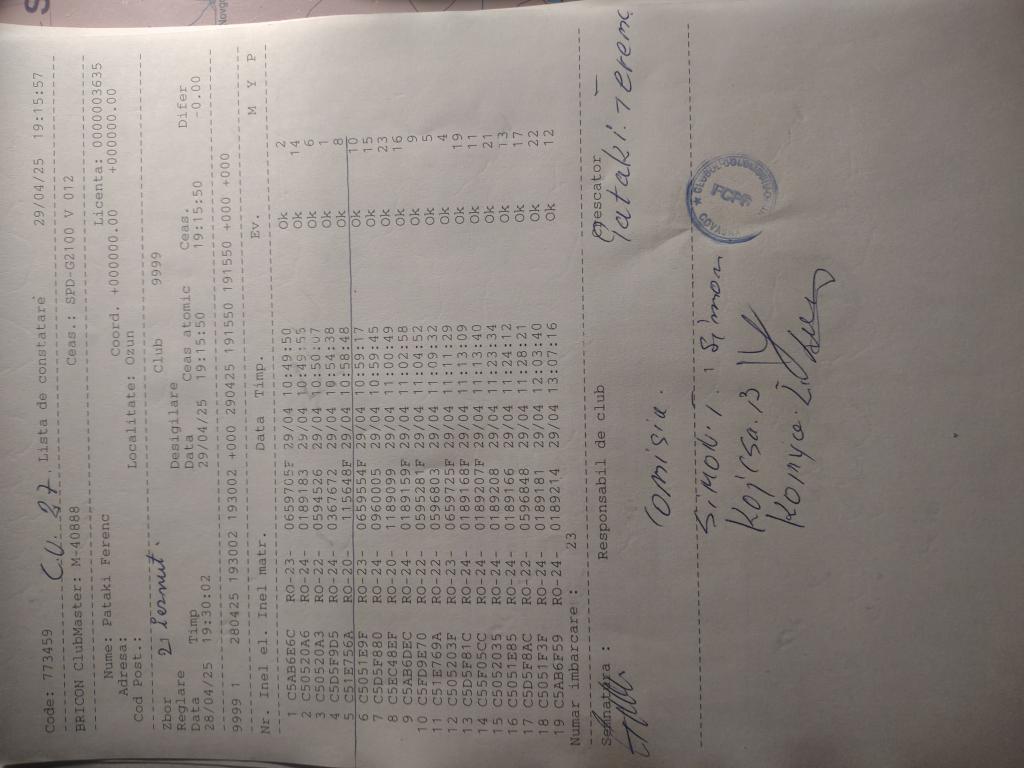 Code: 773459 C.U. 27. Lista de constatare 29/04/25 19:15:57
BRICON ClubMaster: M-40888 Ceas.: SPD-G2100 V 012
Nume: Pataki Ferenc Licenta: 0000003635
Adresa: Coord. +000000.00 +000000.00
Cod Post.: Localitate: Ozun
Zbor 2 Pernut. Club 9999
Reglare Desigilare
Data Timp Data Ceas atomic Ceas. Difer
28/04/25 19:30:02 29/04/25 19:15:50 19:15:50 -0.00
9999 1 280425 193002 193002 +000 290425 191550 191550 191550 +000 +000
Nr. Inel el. Inel matr. Data Timp. Ev. M Y P
1 C5AB6E6C RO-23- 0659705F 29/04 10:49:50 Ok 2
2 C50520A6 RO-24- 0189183 29/04 10:49:55 Ok 14
3 C50520A3 RO-22- 0594526 29/04 10:50:07 Ok 6
4 C5D5F9D5 RO-24- 0367672 29/04 10:54:38 Ok 1
5 C51E756A RO-20- 115648F 29/04 10:58:48 Ok 8
6 C5051E9F RO-23- 0659554F 29/04 10:59:17 Ok 10
7 C5D5F880 RO-24- 0960005 29/04 10:59:45 Ok 15
8 C5EC48EF RO-20- 1189099 29/04 11:00:49 Ok 23
9 C5AB6DEC RO-24- 0189159F 29/04 11:02:58 Ok 16
10 C5FD9E70 RO-22- 0595281F 29/04 11:04:52 Ok 9
11 C51E769A RO-22- 0596803 29/04 11:09:32 Ok 5
12 C505203F RO-23- 0659725F 29/04 11:11:29 Ok 4
13 C5D5F81C RO-24- 0189168F 29/04 11:13:09 Ok 19
14 C55F05CC RO-24- 0189207F 29/04 11:13:40 Ok 11
15 C5052035 RO-24- 0189208 29/04 11:23:34 Ok 21
16 C5051E85 RO-24- 0189166 29/04 11:24:12 Ok 13
17 C5D5F8AC RO-22- 0596848 29/04 11:28:21 Ok 17
18 C5051F3F RO-24- 0189181 29/04 12:03:40 Ok 22
19 C5AB6F59 RO-24- 0189214 29/04 13:07:16 Ok 12
Numar imbarcare : 23
Semnatura : Responsabil de club Crescator
Pataki Ferenc
Comisia.
Simon I. Simon
FCPR
Kojcsa. B
Konyicz. I